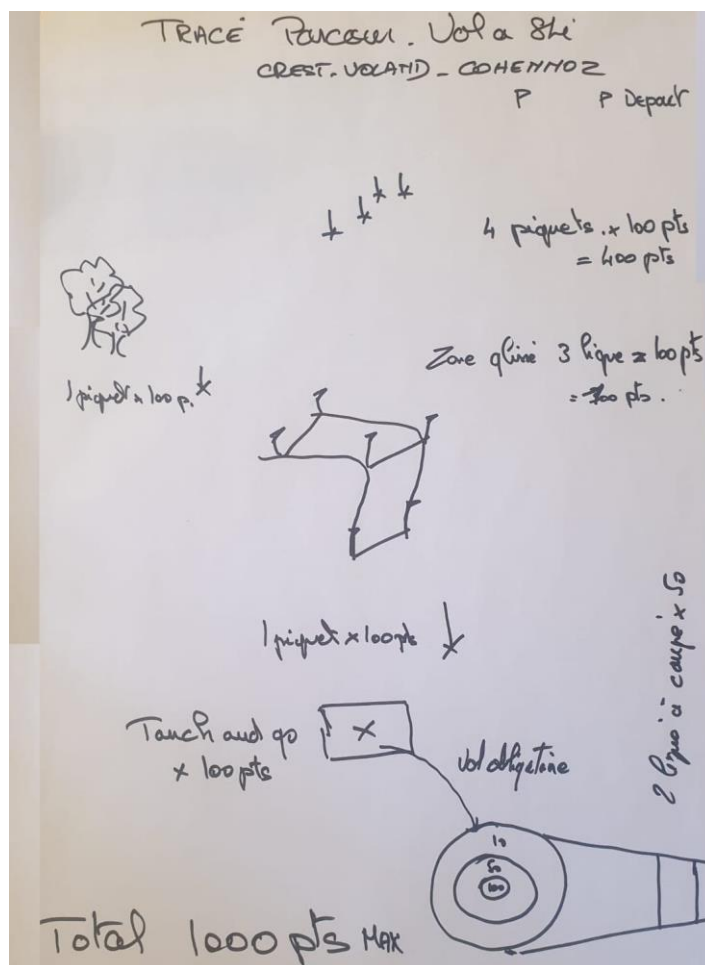 TRACÉ Parcour. Vol a Ski
CREST. VOLAND _ COHENNOZ
P P Depart
4 piquets. x 100 pts
= 400 pts
Zone 3 ligne = 100 pts
= 100 pts.
1 piquet x 100 p.
1 piquet x 100 pts
2 à coupé x 50
Touch and go
x 100 pts
Vol obligatoire
10
50
100
Total 1000 pts MAX